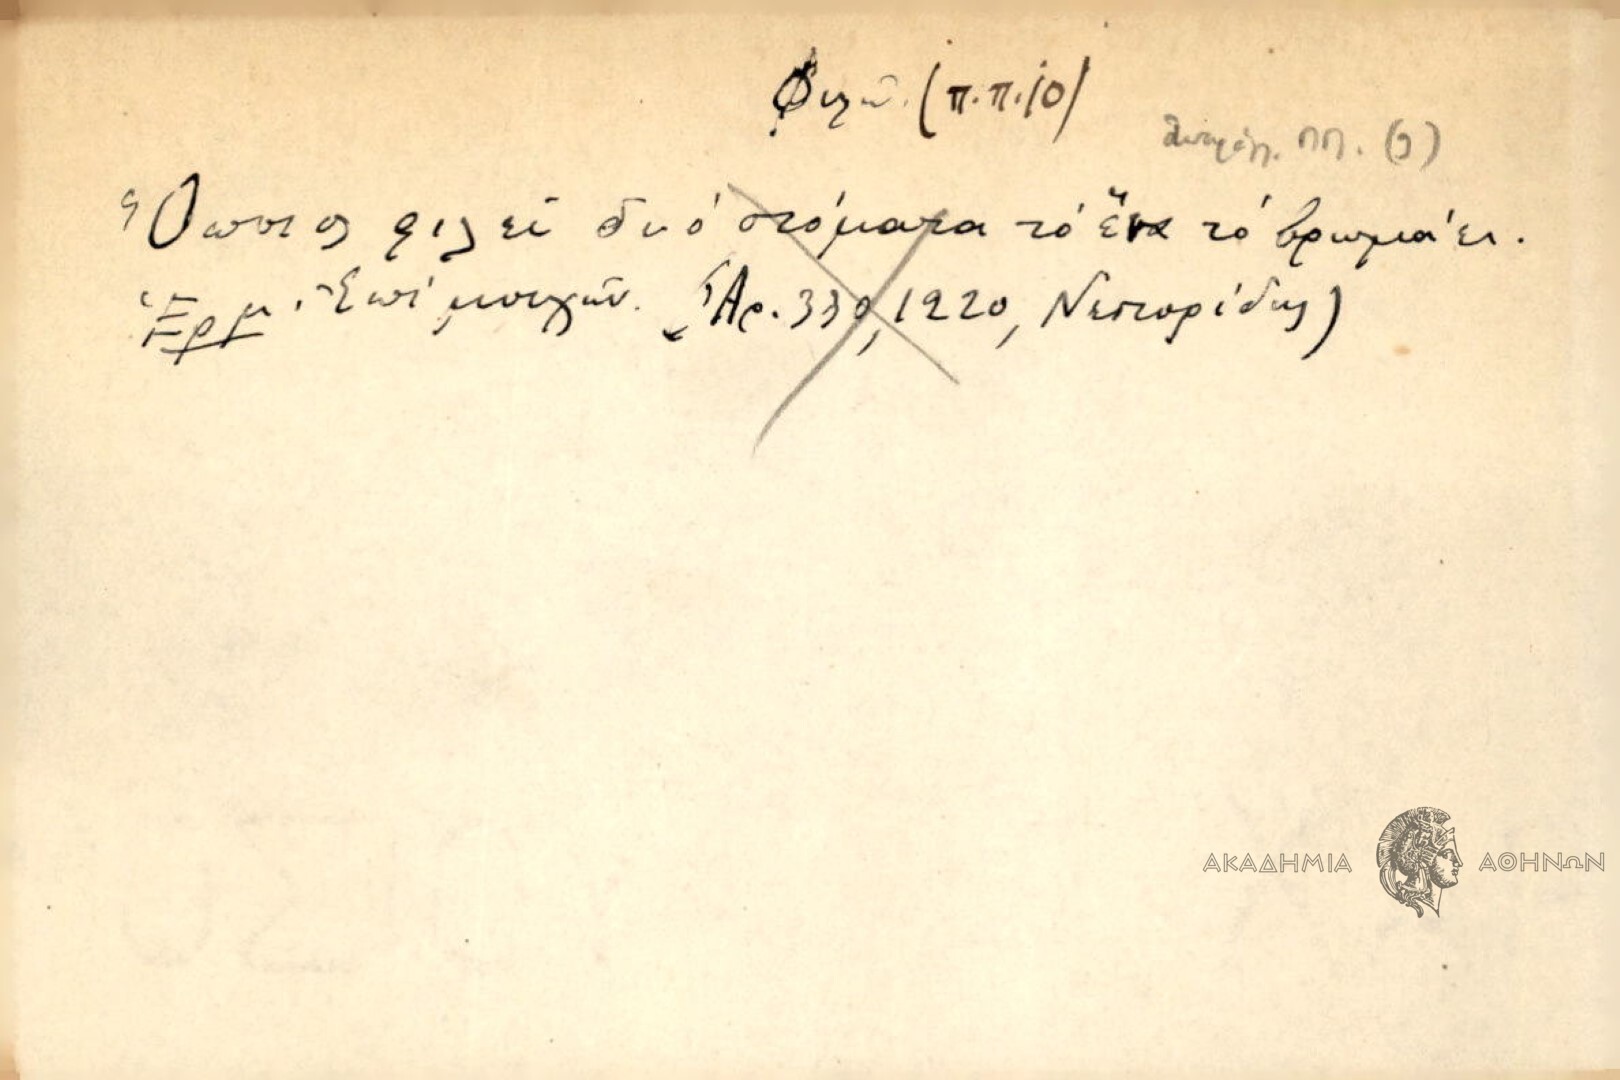 Φιλῶ (π.π. 10)
Ὅποιος φιλεῖ δυό στόματα τό ἕνα τό βρωμάει.
Ἑρμ. Ἐπί μοιχῶν. (Ἀρ. 330, 1920, Νεστορίδης)
ΑΚΑΔΗΜΙΑ ΑΘΗΝΩΝ